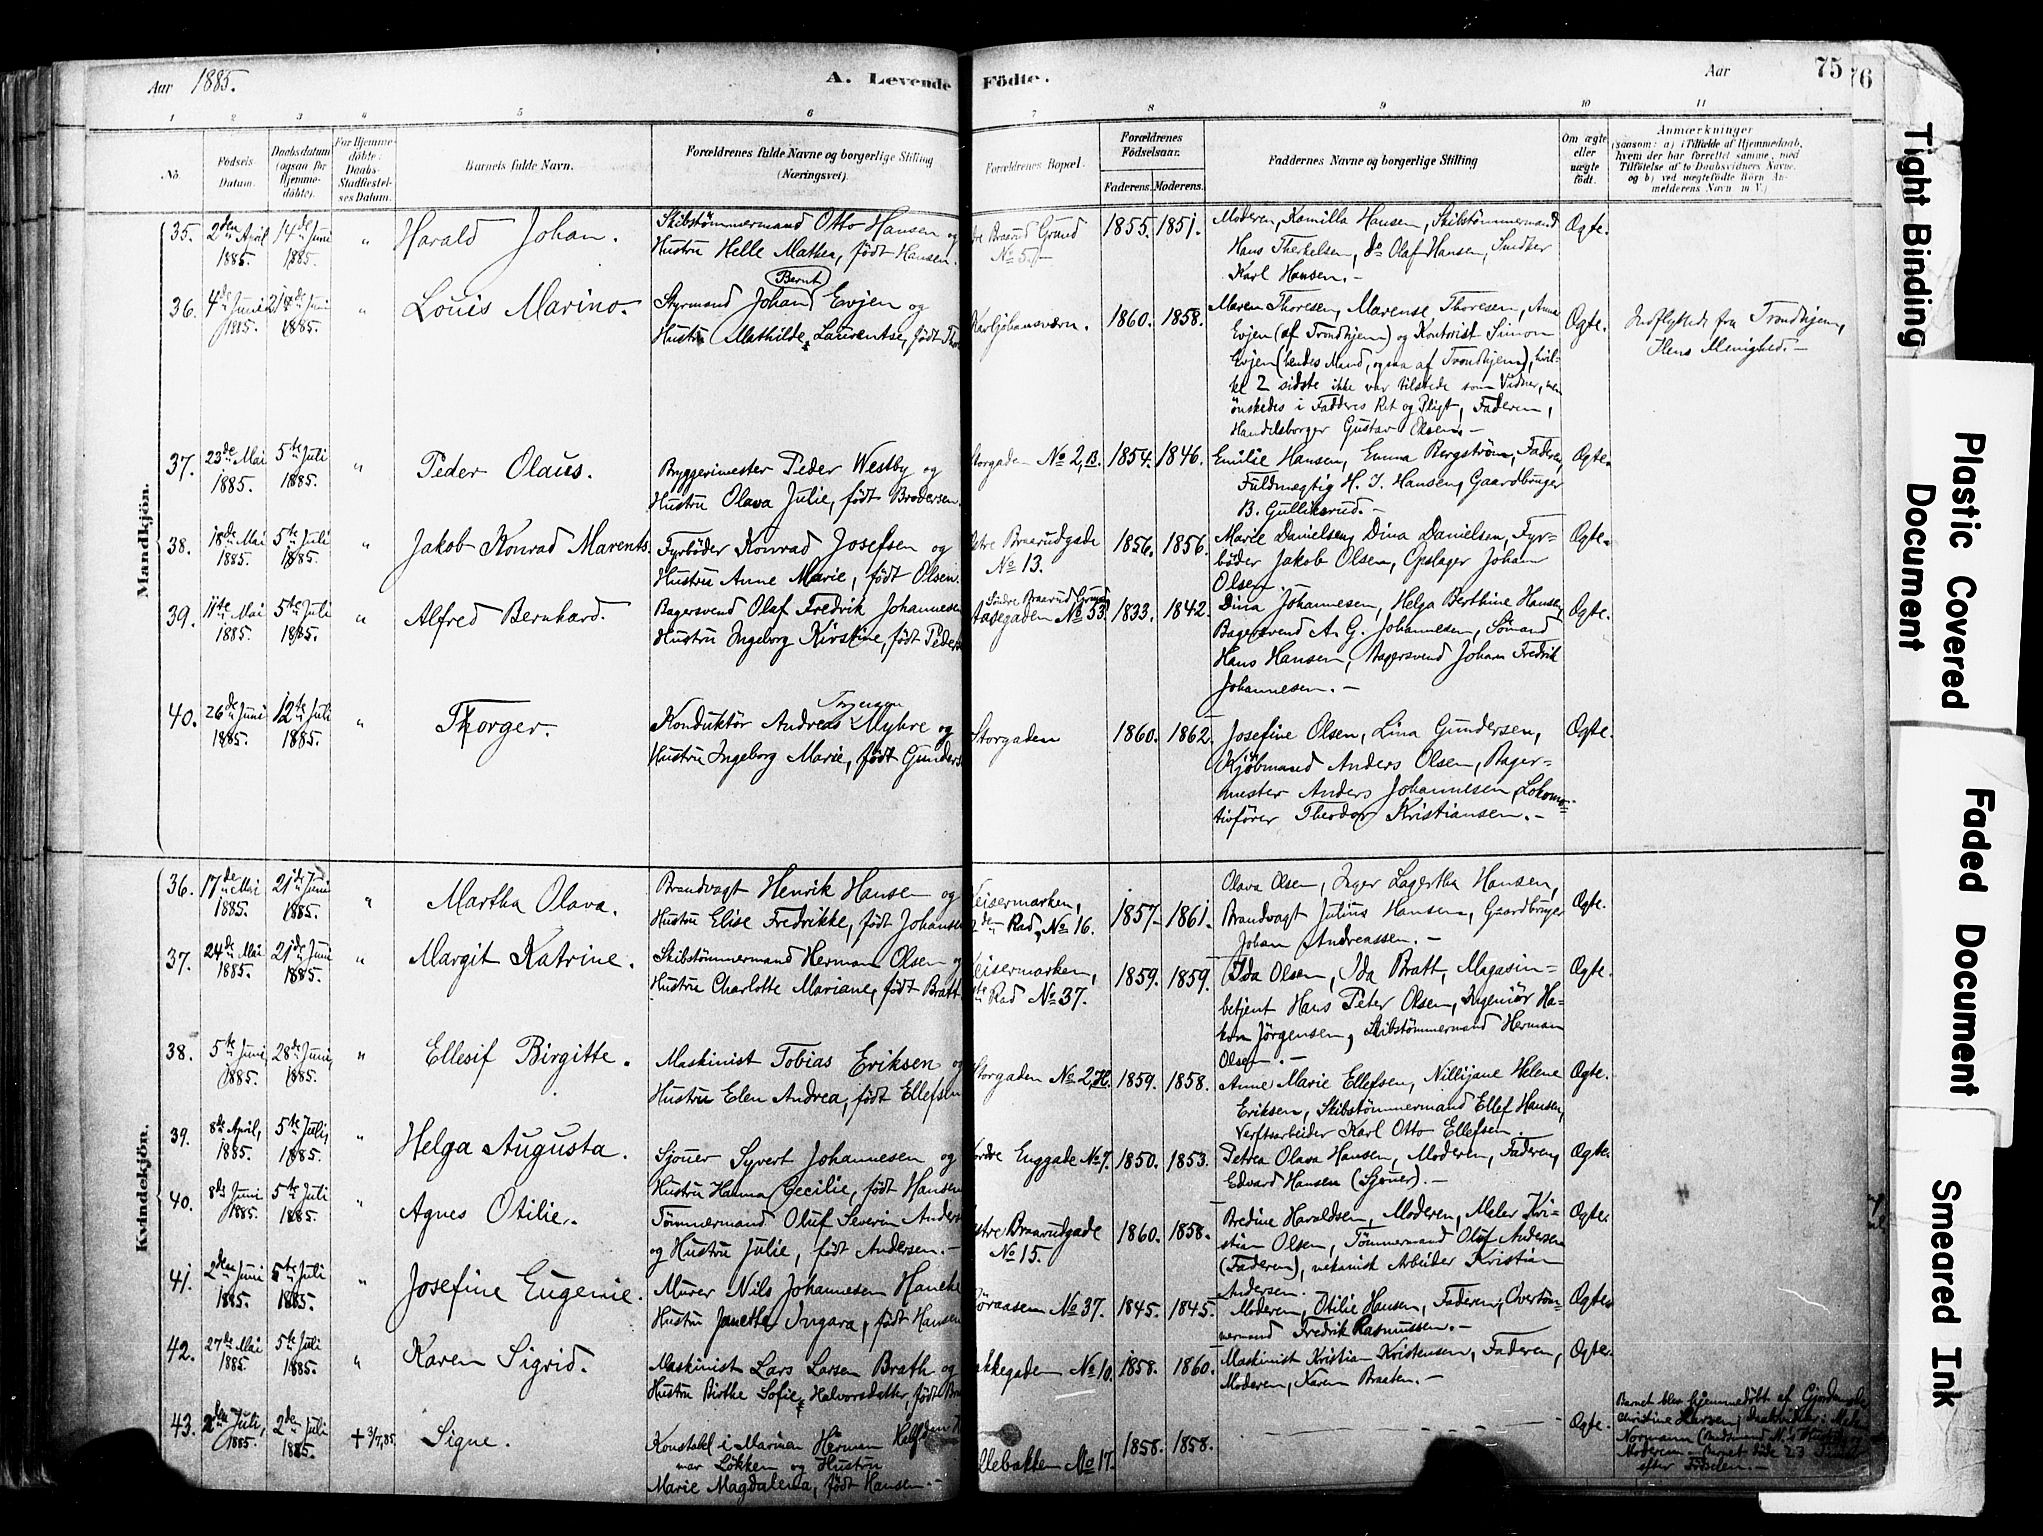 Aar 1885. A. Levende Födte. Aar 75 76
1 2 3 4 5 6 7 8 9 10 11
No. Födsels Datum. Daabsdatum (ogsaa for Hjemmedöbte). For Hjemmedöbte: Daabs-Stadfæstelses Datum. Barnets fulde Navn. Forældrenes fulde Navne og borgerlige Stilling (Næringsvei). Forældrenes Bopæl. Forældrenes Födselsaar. Faderens. Moderens. Faddernes Navne og borgerlige Stilling Om ægte eller uægte födt. Anmærkninger (saasom: a) i Tilfælde af Hjemmedaab, hvem der har forrettet samme, med Tilföielse af to Daabsvidners Navne, og b) ved uægtefödte Börn Anmelderens Navn m V.)
Mandkjön.
35. 2den April 1885. 14de Juni 1885. " Harald Johan. Skibstömmermand Otto Hansen og
Hustru Helle Mathea, födt Hansen. dre Braarud Grund No 5. 1855. 1851. Moderen, Kamilla Hansen, Skibstömmermand
Hans Therkelsen, do Olaf Hansen, Snedker
Karl Hansen. Ægte.
36. 4de Juni 1885. 21de Juni 1885. " Louis Marino. Styrmand Johan Bernt Evjen og
Hustru Mathilde Laurentse, födt Thor Karljohansværn. 1860. 1858. Maren Thoresen, Marense Thoresen, Anna
Evjen (af Trondhjem) og Kontorist Simon
Evjen (hendes Mand, ogsaa af Trondhjem), hvil-
ke 2 sidste ikke var tilstede som Vidner, men
önskedes i Fadderes Ret og Pligt, Faderen,
Handelsborger Gustav Olsen. Ægte. Indflyttede fra Trondhjem,
Ilens Menighed.
37. 23de Mai 1885. 5te Juli 1885. " Peder Olaus. Bryggerimester Peder Westby og
Hustru Olava Julie, födt Brodersen. Storgaden No 2, B. 1854. 1846. Emilie Hansen, Emma Bergström, Faderen,
Fuldmægtig H. J. Hansen, Gaardbruger
B. Gulliksrud. Ægte.
38. 18de Mai 1885. 5te Juli 1885. " Jakob Konrad Marents. Fyrböder Konrad Josefsen og
Hustru Anne Marie, födt Olsen. stre Braarudgade No 13. 1856. 1856. Marie Danielsen, Dina Danielsen, Fyr-
böder Jakob Olsen, Opslager Johan
Olsen. Ægte.
39. 11te Mai 1885. 5te Juli 1885. " Alfred Bernhard. Bagersvend Olaf Fredrik Johannesen
Hustru Ingeborg Kirstine, födt Peders Söndre Braarud Grund
No 53. 1833. 1842. Dina Johannesen, Helga Berthine Hansen,
Bagersvend A. G. Johannesen, Sömand
Hans Hansen, Bagersvend Johan Fredrik
Johannesen. Ægte.
40. 26de Juni 1885. 12te Juli 1885. " Thorger. Konduktör Andreas Myhre og
Hustru Ingeborg Marie, födt Gunders Storgaden 1860. 1862. Josefine Olsen, Lina Gundersen,
Kjöbmand Anders Olsen, Bager-
mester Anders Johannesen, Lokomo-
tivförer Theodor Kristiansen. Ægte.
Kvindekjön.
36. 17de Mai 1885. 21de Juni 1885. " Martha Olava. Brandvagt Henrik Hansen og
Hustru Elise Fredrikke, födt Johansen eisermarken,
den Rad, No 16. 1857. 1861. Olava Olsen, Inger Lagertha Hansen,
Brandvagt Julius Hansen, Gaardbruger
Johan Andreassen. Ægte.
37. 24de Mai 1885. 21de Juni 1885. " Margit Katrine. Skibstömmermand Herman Olsen og
Hustru Charlotte Mariane, födt Bratt eisermarken,
te Rad No 37. 1859. 1859. Ida Olsen, Ida Bratt, Magasin-
betjent Hans Peter Olsen, Ingeniör Ha-
kon Jörgensen, Skibstömmermand Herman
Olsen. Ægte.
38. 5te Juni 1885. 28de Juni, 1885. " Ellesif Birgitte. Maskinist Tobias Eriksen og
Hustru Elen Andrea, födt Ellefsen Storgaden No 2, H. 1859. 1858. Anne Marie Ellefsen, Nillijane Helene
Eriksen, Skibstömmermand Ellef Hansen,
Verftsarbeider Karl Otto Ellefsen. Ægte.
39. 8de April, 1885. 5te Juli, 1885. " Helga Augusta. Sjouer Syvert Johannesen og
Hustru Hanna Cecilie, födt Hansen ordre Enggade No 7. 1850. 1853. Petrea Olava Hansen, Moderen, Faderen,
Edvard Hansen (Sjouer). Ægte.
40. 8de Juni 1885. 5te Juli 1885. " Agnes Otilie. Tömmermand Oluf Severin Anders
og Hustru Julie, födt Andersen. stre Braarudgade No 15. 1860. 1858. Bredine Haraldsen, Moderen, Maler Kri-
stian Olsen, Tömmermand Oluf Andersen
(Faderen), mekanisk Arbeider Kristian
Andersen. Ægte.
41. 2den Juni 1885. 5te Juli 1885. " Josefine Eugenie. Murer Nils Johannesen
Hustru Janette Ingara, födt Hansen öraasen No 37. 1845. 1845. Moderen, Otilie Hansen, Faderen, Overtöm-
mermand Fredrik Rasmussen. Ægte.
42. 27de Mai 1885. 5te Juli 1885. " Karen Sigrid. Maskinist Lars Larsen Brath og
Hustru Birthe Sofie Halvorsdatter, födt Br akkegaden No 10. 1858. 1860. Maskinist Kristian Kristensen, Faderen,
Moderen, Karen Braaten. Ægte.
43. 2den Juli, 1885. 2den Juli 1885. + 3/7, 85. Signe. Konstabel i Marinen Herman
mar Lökken og Hustru
Marie Magdalena, födt Hansen. llebakken No 17. 1858. 1858. Ægte. Barnet blev hjemmedöbt af Gjordemoder
Christine Larsen,
Normann
Moderen. Barnet döde 23 Timer
efter Födselen.
Tight Binding
Plastic Covered
Document
Faded Document
Smeared Ink